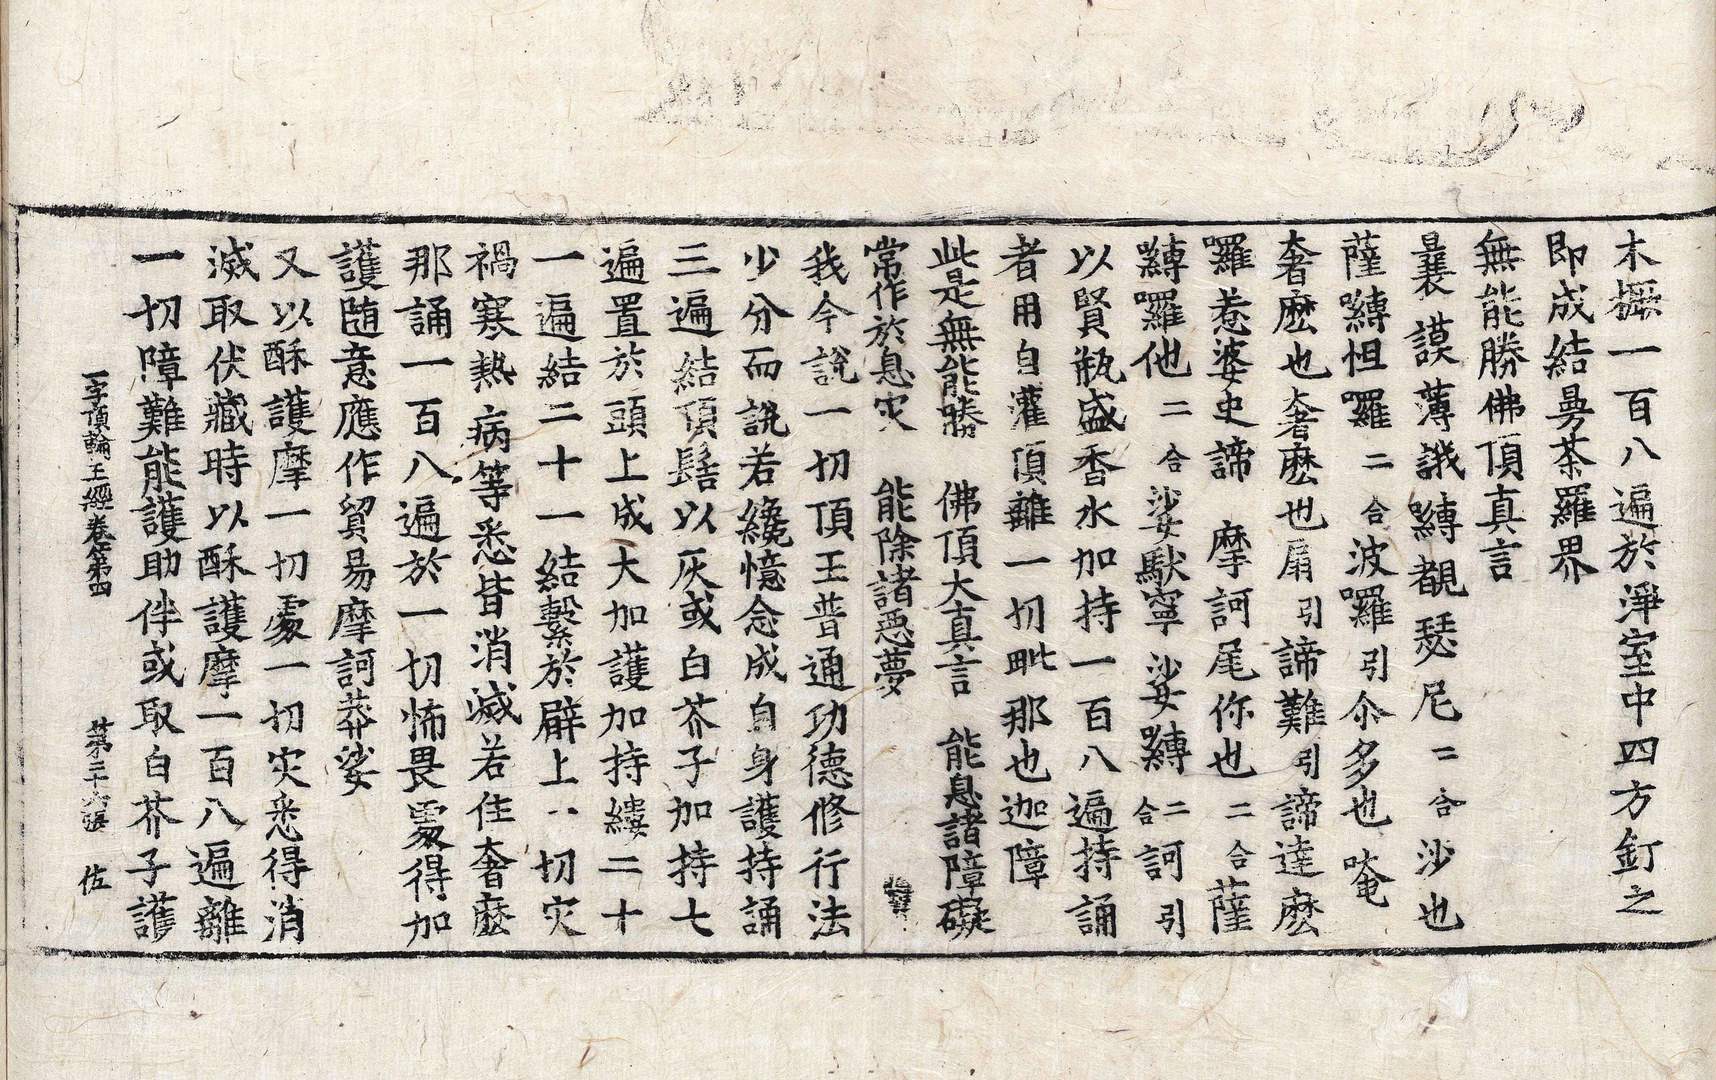 木橛一百八遍於淨室中四方釘之
即成結曼荼羅界
無能勝佛頂真言
曩謨薄誐嚩覩瑟尼二合沙也
薩嚩怛囉二合波囉引尒多也唵
奢麽也奢麽也扇引諦難引諦達麽
囉惹婆史諦摩訶尾你也二合薩
嚩囉他二合娑馱寧娑嚩二合訶引
以賢瓶盛香水加持一百八遍持誦
者用自灌頂離一切毗那也迦障
此是無能勝 佛頂大真言 能息諸障礙
常作於息灾 能除諸惡夢
我今說一切頂王普通功德修行法
少分而說若纔憶念成自身護持誦
三遍結頂髻以灰或白芥子加持七
遍置於頭上成大加護加持縷二十
一遍結二十一結繫於臂上一切灾
禍寒熱病等悉皆消滅若住奢麽
那誦一百八遍於一切怖畏處得加
護隨意應作貿易摩訶莽娑
又以酥護摩一切處一切灾悉得消
滅取伏藏時以酥護摩一百八遍離
一切障難能護助伴或取白芥子護
一字頂輪王經卷第四 第二十六張 佐